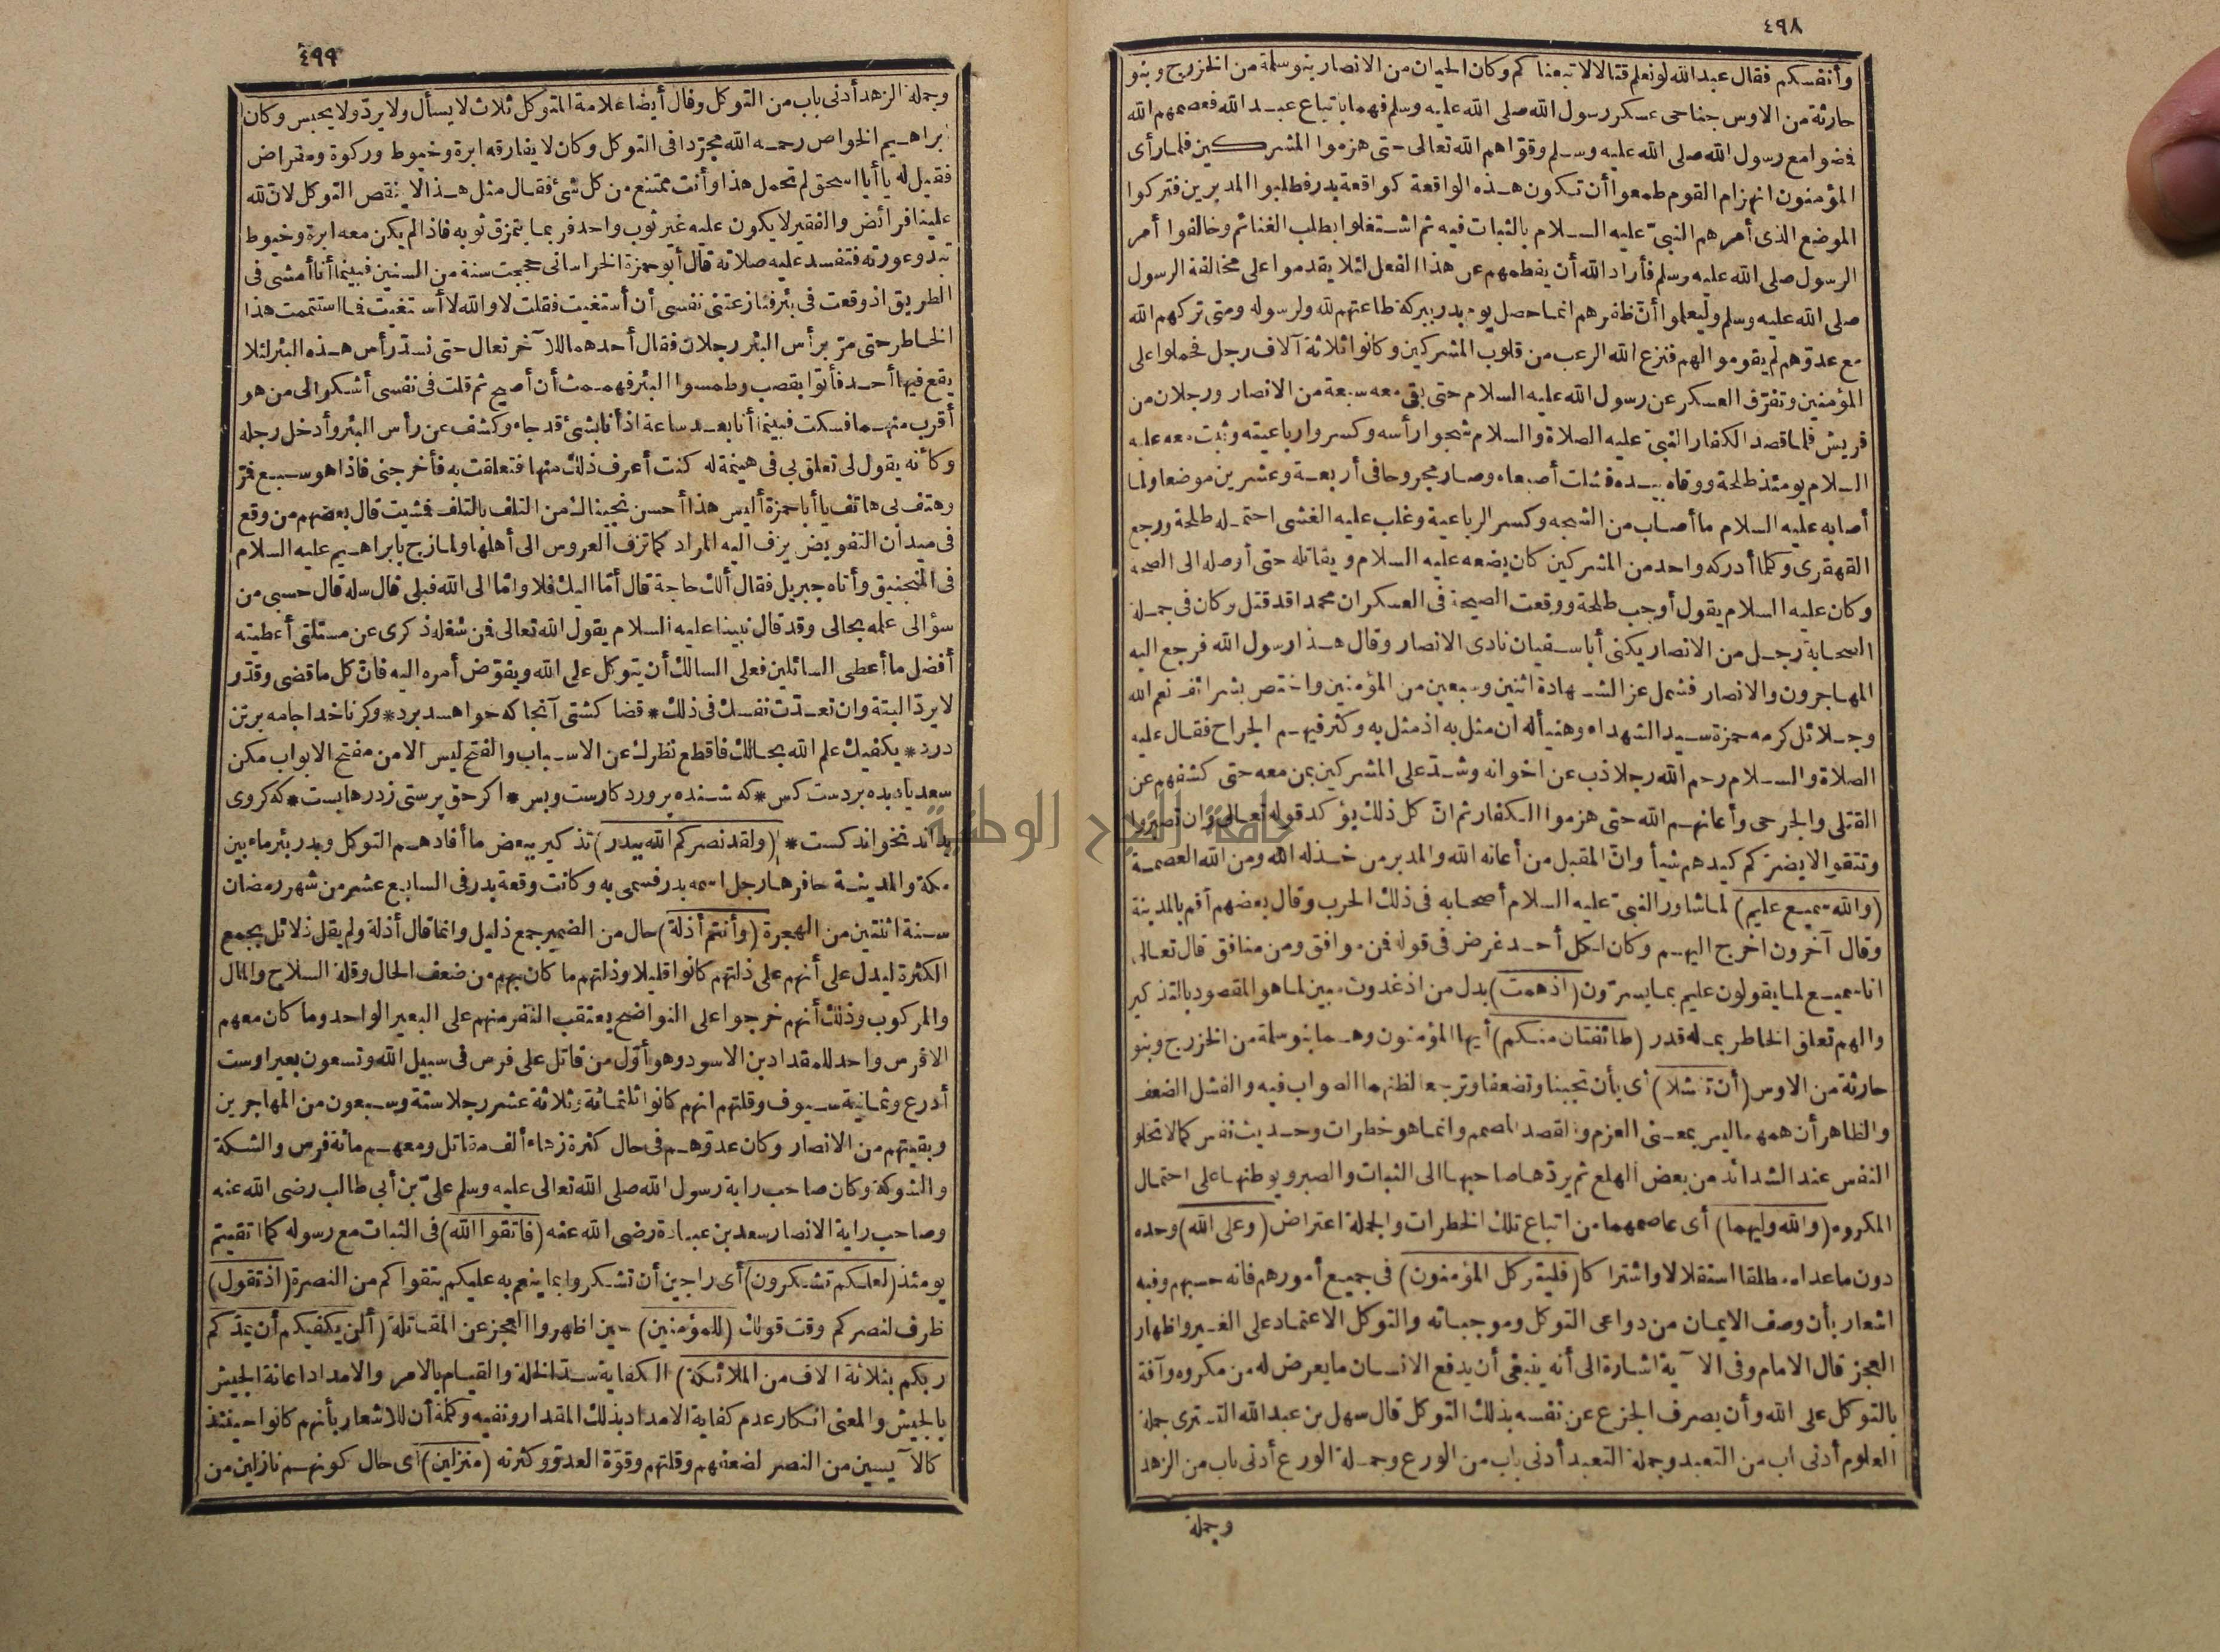 ٤٩٨
وأنفسكم فقال عبد الله لو نعلم قتالا لاتبعناكم وكان الحيان من الانصار بنو سلمة من الخزرج وبنو
حارثة من الاوس جناحى عسكر رسول الله صلى الله عليه وسلم فهما باتباع عبد الله فعصمهم الله
فمضوا مع رسول الله صلى الله عليه وسلم وقواهم الله تعالى حتى هزموا المشركين فلما رأى
المؤمنون انهزام القوم طمعوا أن تكون هذه الواقعة كواقعة بدر فطلبوا المدبرين فتركوا
الموضع الذى أمرهم النبىّ عليه السلام بالثبات فيه ثم اشتغلوا بطلب الغنائم وخالفوا أمر
الرسول صلى الله عليه وسلم فأراد الله أن يفطمهم عن هذا الفعل لئلا يقدموا على مخالفة الرسول
صلى الله عليه وسلم وليعلموا أنّ ظفرهم انما حصل يوم بدر ببركة طاعتهم لله ولرسوله ومتى تركهم الله
مع عدوّهم لم يقوموا لهم فنزع الله الرعب من قلوب المشركين وكانوا ثلاثة آلاف رجل فحملوا على
المؤمنين وتفرّق العسكر عن رسول الله عليه السلام حتى بقى معه سبعة من الانصار ورجلان من
قريش فلما قصد الكفار النبىّ عليه الصلاة والسلام شجوا رأسه وكسروا رباعيته وثبت معه عليه
السلام يومئذ طلحة ووقاه بيده فشلت أصبعاه وصار مجروحا فى أربعة وعشرين موضعا ولما
أصابه عليه السلام ما أصاب من الشجه وكسر الرباعية وغلب عليه الغشى احتمله طلحة ورجع
القهقرى وكلما أدركه واحد من المشركين كان يضعه عليه السلام ويقاتله حتى أوصله الى الصحه
وكان عليه السلام يقول أوجب طلحة ووقعت الصيحة فى العسكر ان محمدا قد قتل وكان فى جملة
الصحابة رجل من الانصار يكنى أبا سفيان نادى الانصار وقال هذا رسول الله فرجع اليه
المهاجرون والانصار فشمل عز الشهادة اثنين وسبعين من المؤمنين واختص بشرائف نعم الله
وجلائل كرمه حمزة سيد الشهداء وهنيأ له ان مثل به اذ مثل به وكثر فيهم الجراح فقال عليه
الصلاة والسلام رحم الله رجلا ذب عن اخوانه وشدّ على المشركين بمن معه حتى كشفهم عن
القتلى والجرحى وأعانهم الله حتى هزموا الكفار ثم انّ كل ذلك يؤكد قوله تعالى وان تصبروا
وتتقوا لا يضركم كيدهم شيأ وانّ المقبل من أعانه الله والمدبر من خذله الله ومن الله العصمة
(والله سميع عليم) لما شاور النبىّ عليه السلام أصحابه فى ذلك الحرب وقال بعضهم أقم بالمدينة
وقال آخرون اخرج اليهم وكان لكل أحد غرض فى قوله فمن موافق ومن منافق قال تعالى
انا سميع لما يقولون عليم بما يسرّون (اذ همت) بدل من اذ غدوت مبين لما هو المقصود بالتذكير
والهم تعلق الخاطر بما له قدر (طائفتان منكم) أيها المؤمنون وهما بنو سلمة من الخزرج وبنو
حارثة من الاوس (أن تفشلا) أى بأن تجبنا وتضعفا وترجعا لظنهما الصواب فيه والفشل الضعف
والظاهر أن همهما ليس بمعنى العزم والقصد المصمم وانما هو خطرات وحديث نفس كما لا تخلو
النفس عند الشدائد من بعض الهلع ثم يردّها صاحبها الى الثبات والصبر ويوطنها على احتمال
المكروه (والله وليهما) أى عاصمهما من اتباع تلك الخطرات والجملة اعتراض (وعلى الله) وحده
دون ما عداه مطلقا استقلالا واشتراكا (فليتوكل المؤمنون) فى جميع أمورهم فانه حسبهم وفيه
اشعار بأن وصف الايمان من دواعى التوكل وموجباته والتوكل الاعتماد على الغير واظهار
العجز قال الامام وفى الآية اشارة الى أنه ينبغى أن يدفع الانسان ما يعرض له من مكروه وآفة
بالتوكل على الله وأن يصرف الجزع عن نفسه بذلك التوكل قال سهل بن عبد الله التسترى جملة
العلوم أدنى باب من التعبد وجملة التعبد أدنى باب من الورع وجملة الورع أدنى باب من الزهد
وجملة
٤٩٩
وجملة الزهد أدنى باب من التوكل وقال أيضا علامة المتوكل ثلاث لا يسأل ولا يردّ ولا يحبس وكان
ابراهيم الخواص رحمه الله مجرّدا فى التوكل وكان لا يفارقه ابرة وخيوط وركوة ومقراض
فقيل له يا أبا اسحق لم تحمل هذا وأنت ممتنع من كل شئ فقال مثل هذا لا ينقص التوكل لانّ لله
علينا فرائض والفقير لا يكون عليه غير ثوب واحد فربما يتمزق ثوبه فاذا لم يكن معه ابرة وخيوط
تبدو عورته فتفسد عليه صلاته قال أبو حمزة الخراسانى حججت سنة من السنين فبينما أنا أمشى فى
الطريق اذ وقعت فى بئر فنازعتنى نفسى أن أستغيث فقلت لا والله لا أستغيث فما استتممت هذا
الخاطر حتى مرّ برأس البئر رجلان فقال أحدهما للآخر تعال حتى نسدّ رأس هذه البئر لئلا
يقع فيها أحد فأتوا بقصب وطمسوا البئر فهممت أن أصيح ثم قلت فى نفسى أشكو الى من هو
أقرب منهما فسكت فبينما أنا بعد ساعة اذ أنا بشئ قد جاء وكشف عن رأس البئر وأدخل رجله
وكأنه يقول لى تعلق بى فى هينمة له كنت أعرف ذلك منها فتعلقت به فأخرجنى فاذا هو سبع فمرّ
وهتف بى هاتف يا أبا حمزة أليس هذا أحسن نجيناك من التلف بالتلف فمشيت قال بعضهم من وقع
فى ميدان التفويض يزف اليه المراد كما تزف العروس الى أهلها ولما زج بابراهيم عليه السلام
فى المنجنيق وأتاه جبريل فقال ألك حاجة قال أمّا اليك فلا وامّا الى الله فبلى قال سله قال حسبى من
سؤالى علمه بحالى وقد قال نبينا عليه السلام يقول الله تعالى من شغله ذكرى عن مسئلتى أعطيته
أفضل ما أعطى السائلين فعلى السالك أن يتوكل على الله ويفوّض أمره اليه فانّ كل ما قضى وقدّر
لا يردّ البتة وان تعدّت نفسك فى ذلك * قضا كشتى آنجا كه خواهد برد * وكر ناخدا جامه بر تن
درد * يكفيك علم الله بحالك فاقطع نظرك عن الاسباب والفتح ليس الا من مفتح الابواب مكن
سعديا ديده بر دست كس * كه بخشنده پروردكارست وبس * اكر حق پرستى زدرها بست * كه كر وى
براند نخواند كست * (ولقد نصركم الله ببدر) تذكير ببعض ما أفادهم التوكل وبدر بئر ماء بين
مكة والمدينة حافرها رجل اسمه بدر فسمى به وكانت وقعة بدر فى السابع عشر من شهر رمضان
سنة اثنتين من الهجرة (وأنتم أذلة) حال من الضمير جمع ذليل وانما قال أذلة ولم يقل ذلائل بجمع
الكثرة ليدل على أنهم على ذلتهم كانوا قليلا وذلتهم ما كان بهم من ضعف الحال وقلة السلاح والمال
والمركوب وذلك أنهم خرجوا على النواضح يعتقب النفر منهم على البعير الواحد وما كان معهم
الا فرس واحد للمقداد بن الاسود وهو أوّل من قاتل على فرس فى سبيل الله وتسعون بعيرا وست
أدرع وثمانية سيوف وقلتهم انهم كانوا ثلثمائة وثلاثة عشر رجلا ستة وسبعون من المهاجرين
وبقيتهم من الانصار وكان عدوّهم فى حال كثرة زهاء ألف مقاتل ومعهم مائة فرس والشكة
والشوكة وكان صاحب راية رسول الله صلى الله تعالى عليه وسلم علىّ بن أبى طالب رضى الله عنه
وصاحب راية الانصار سعد بن عبادة رضى الله عنه (فاتقوا الله) فى الثبات مع رسوله كما اتقيتم
يومئذ (لعلكم تشكرون) أى راجين أن تشكروا بما ينعم به عليكم بتقواكم من النصرة (اذ تقول)
ظرف لنصركم وقت قولك (للمؤمنين) حين اظهروا العجز عن المقاتلة (ألن يكفيكم أن يمدّكم
ربكم بثلاثة آلاف من الملائكة) الكفاية سدّ الخلة والقيام بالامر والامداد اعانة الجيش
بالجيش والمعنى انكار عدم كفاية الامداد بذلك المقدار ونفيه وكلمة أن للاشعار بأنهم كانوا حينئذ
كالآيسين من النصر لضعفهم وقلتهم وقوّة العدوّ وكثرته (منزلين) أى حال كونهم نازلين من
جامعة النجاح الوطنية